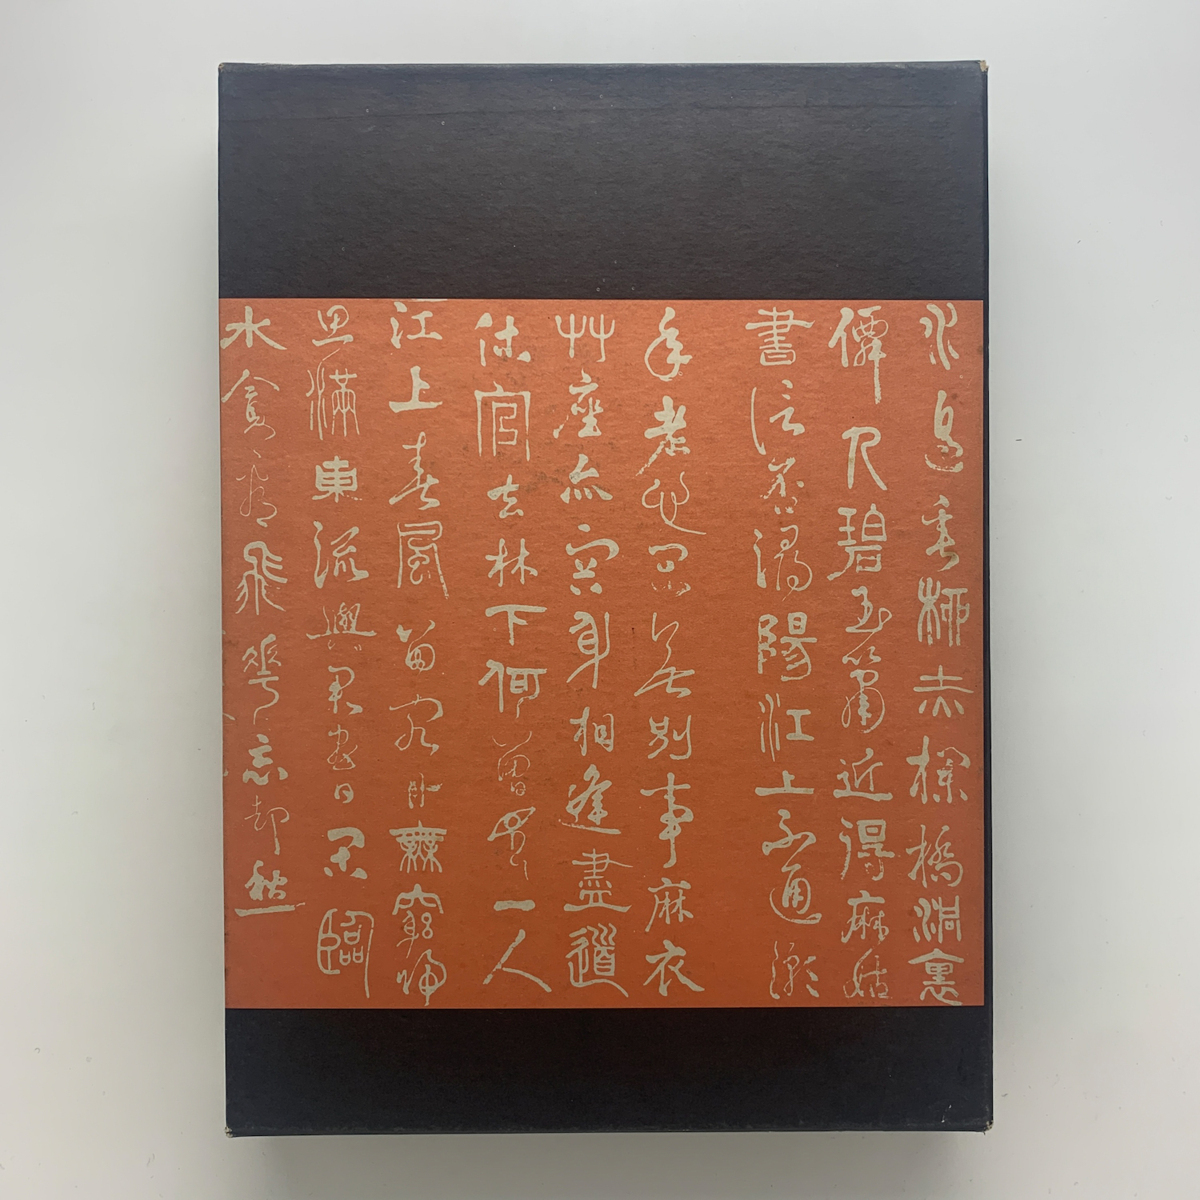 水邊垂桺赤欄橋洞裏
僊人碧玉簫近得麻姑
書信否潯陽江上不通潮
年老心閑無別事麻衣
艸座亦容身相逢盡道
休官去林下何曾見一人
江上春風留客舟無窮歸
思滿東流與君盡日閑臨
水貪看飛花忘却愁